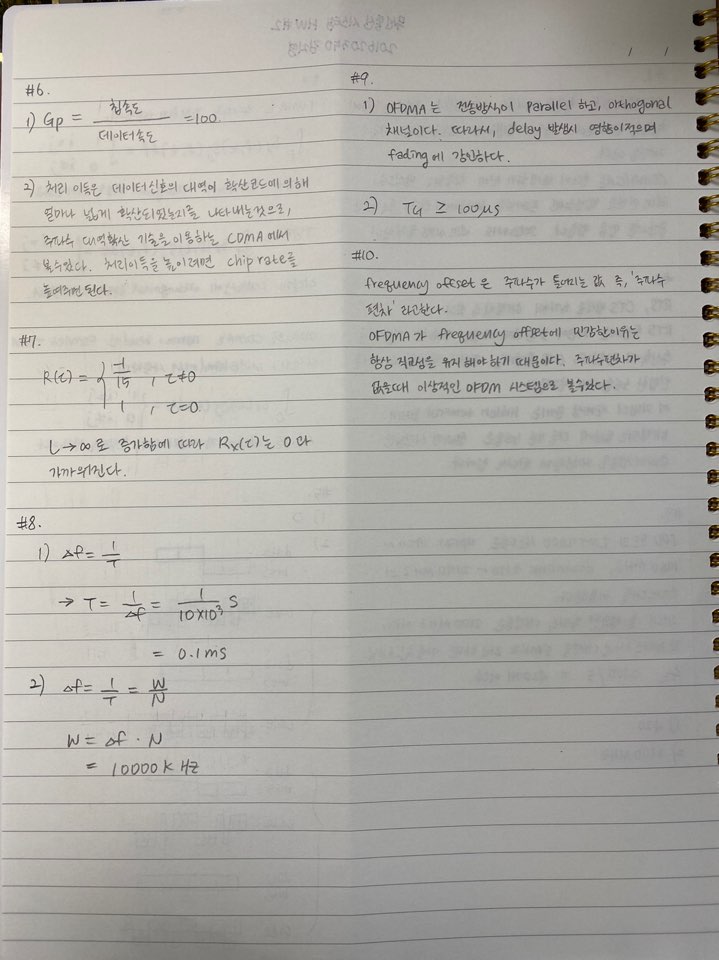 #6.
1) Gp = 칩속도 / 데이터속도 = 100
2) 처리 이득은 데이터신호의 대역이 확산코드에 의해
얼마나 넓게 확산되었는지를 나타내는것으로,
주파수 대역확산 기술을 이용하는 CDMA에서
볼수있다. 처리이득을 높이려면 chip rate를
높여주면 된다.
#7.
R(τ) = { -1/15 , τ≠0
1 , τ=0
L→∞로 증가함에 따라 Rx(τ)는 0과
가까워진다.
#8.
1) Δf = 1/T
→ T = 1/Δf = 1/10×10³ s
= 0.1ms
2) Δf = 1/T = W/N
W = Δf · N
= 10000k Hz
#9.
1) OFDMA는 전송방식이 parallel 하고, orthogonal
채널이다. 따라서, delay 발생시 영향이적으며
fading에 강인하다.
2) TG ≥ 100μs
#10.
frequency offset 은 주파수가 틀어지는 값 즉, '주파수
편차' 라고한다.
OFDMA가 frequency offset에 민감한이유는
항상 직교성을 유지해야하기 때문이다. 주파수편차가
없을때 이상적인 OFDM 시스템으로 볼수있다.